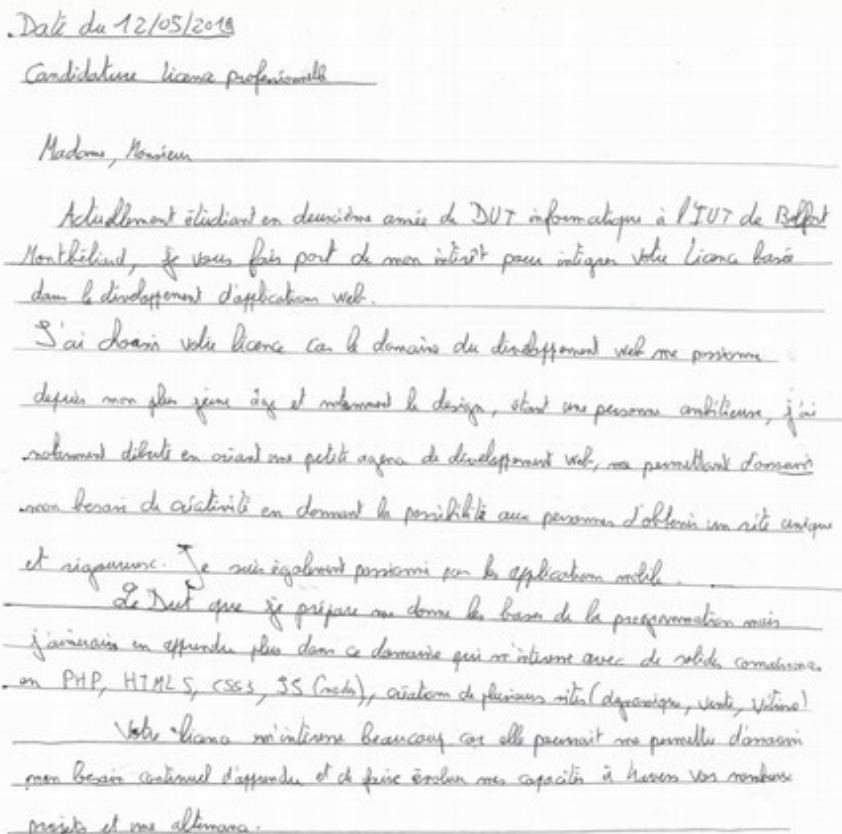 Date du 12/05/2018
Candidature licence professionnelle
Madame, Monsieur
Actuellement étudiant en deuxième année de DUT informatique à l'IUT de Belfort
Montbéliard, je vous fais part de mon intérêt pour intégrer votre Licence basée
dans le développement d'applications web.
J'ai choisi votre licence car le domaine du développement web me passionne
depuis mon plus jeune âge et notamment le design, étant une personne ambitieuse, j'ai
notamment débuté en créant une petite agence de développement web, me permettant d'assouvir
mon besoin de créativité en donnant la possibilité aux personnes d'obtenir un site unique
et rigoureux. Je suis également passionné par les applications mobile.
Le Dut que je prépare me donne les bases de la programmation mais
j'aimerais en apprendre plus dans ce domaine qui m'intéresse avec de solides connaissances
en PHP, HTML5, CSS3, JS (node), création de plusieurs sites (dynamique, vente, vitrine)
Votre licence m'intéresse beaucoup car elle pourrait me permettre d'assouvir
mon besoin continuel d'apprendre et de faire évoluer mes capacités à travers vos nombreux
projets et une alternance.